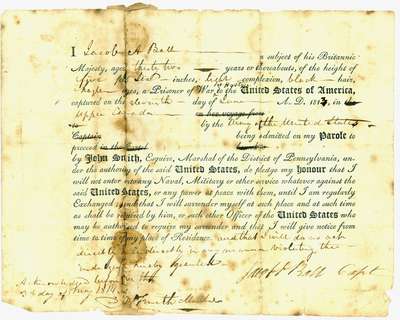 I Jacob A Ball a subject of his Britannic
Majesty, aged thirty two years or thereabouts, of the height of
five feet inches, light complexion, black hair,
eyes, a Prisoner of War to the United States of America,
captured on the day of June A. D. 1813, in the
Upper Canada on her voyage from
to by the of the United States
Captain being admitted on my Parole to
proceed in the Cartel
by John Smith, Esquire, Marshal of the District of Pennsylvania, un-
der the authority of the said United States, do pledge my honour that I
will not enter into any Naval, Military or other service whatever against the
said United States, or any power at peace with them, until I am regularly
Exchanged, and that I will surrender myself at such place and at such time
as shall be required by him, or such other Officer of the United States who
may be authorized to require my surrender and this I will give notice from
time to time of my place of Residence. and that I will do no act
directly or indirectly in any manner violating the
indulgence hereby granted
Acknowledged before me this
day of May 1814
Jacob A Ball Capt
Jn Smith